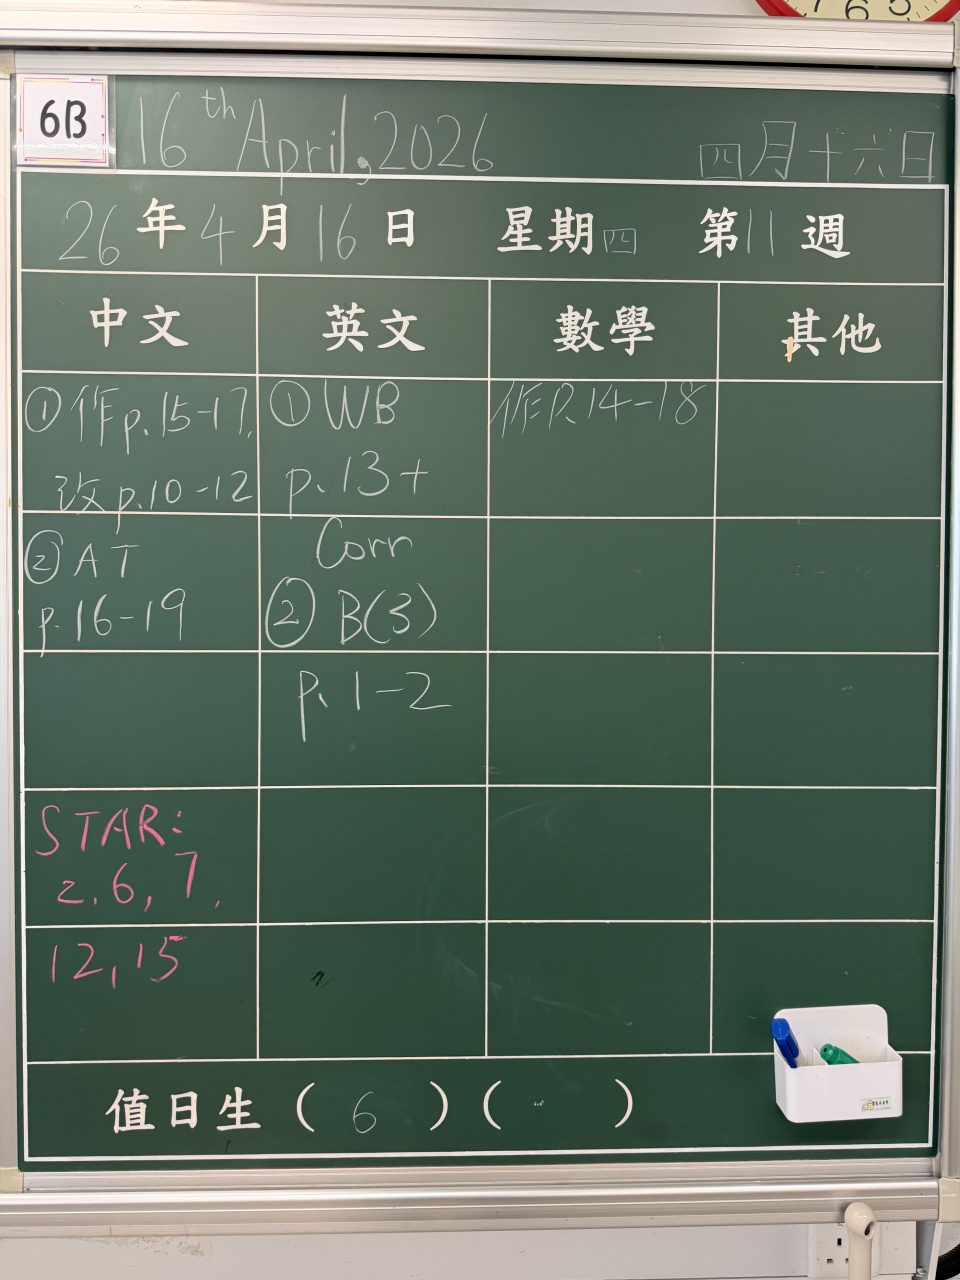 7 6 5
6B
16th April, 2026
四月十六日
26年4月16日 星期四 第11週
中文 英文 數學 其他
①作p.15-17,
改p.10-12
②AT
p.16-19
STAR:
2,6,7,
12,15
①WB
p.13+
Corr
②B(3)
p.1-2
作P.14-18
值日生(6)( )